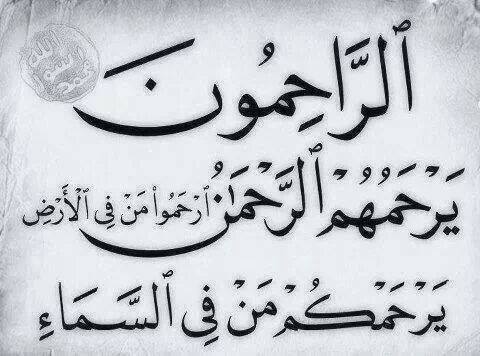 ٱلرَّاحِمُونَ
يَرْحَمُهُمْ ٱلرَّحْمَٰنُ ٱرْحَمُواْ مَنْ فِى ٱلْأَرْضِ
يَرْحَمْكُمْ مَنْ فِى ٱلسَّمَاءِ
محمد رسول الله